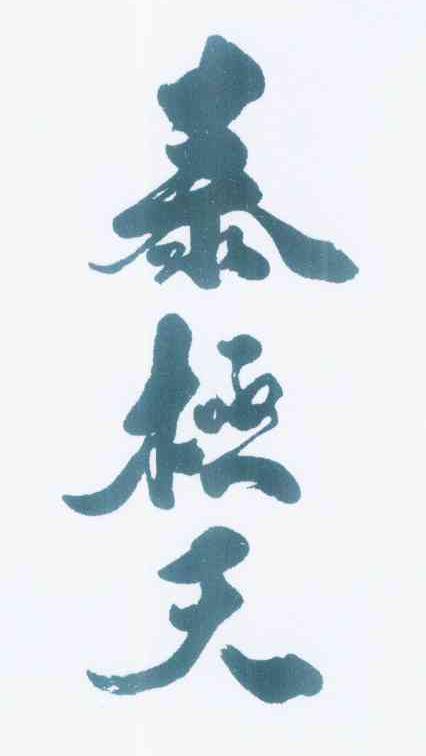 泰極天